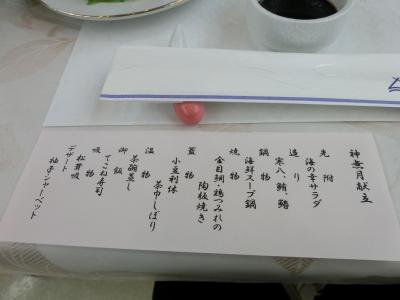 神無月献立
先附
海の幸サラダ
造り
寒八、鮪、鱸
鍋物
海鮮スープ鍋
焼物
金目鯛・鶏つみれの
陶板焼き
蓋物
小豆利休
茶巾しぼり
温物
茶碗蒸し
御飯
てこね寿司
吸物
松茸吸
デザート
柚子シャーベット